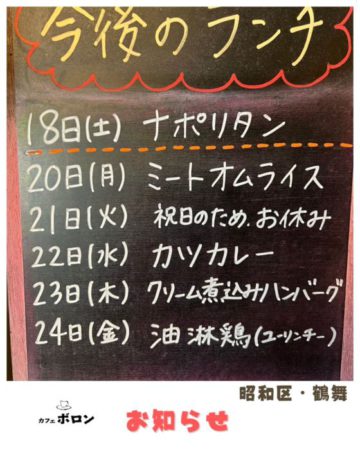 今後のランチ
18日(土) ナポリタン
20日(月) ミートオムライス
21日(火) 祝日のため、お休み
22日(水) カツカレー
23日(木) クリーム煮込みハンバーグ
24日(金) 油淋鶏(ユーリンチー)
昭和区・鶴舞
カフェ ボロン
お知らせ